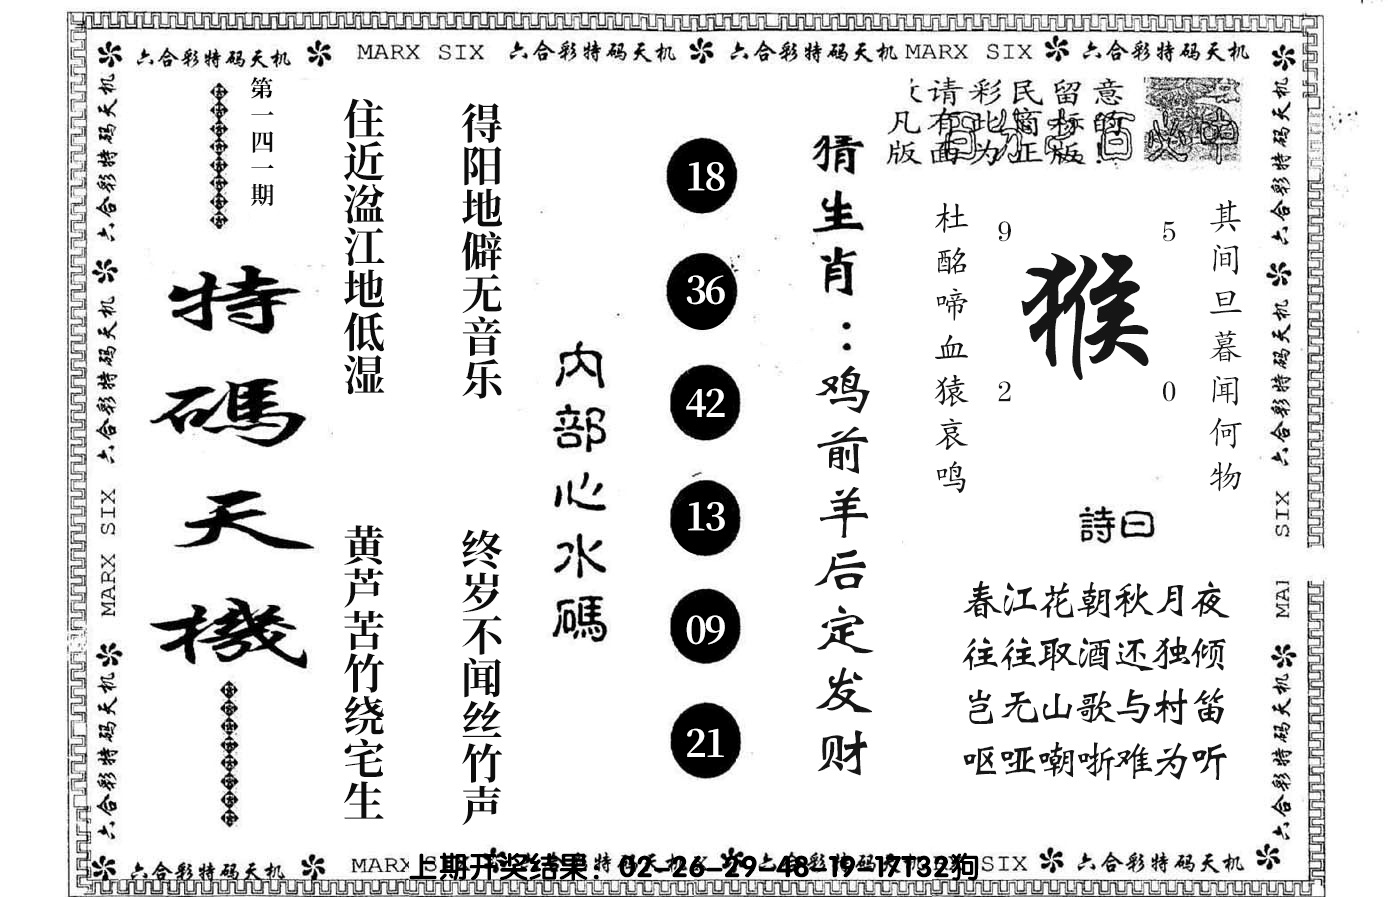 六合彩特码天机 MARX SIX 六合彩特码天机 六合彩特码天机 MARX SIX 六合彩特码天机
第一四一期
特碼天機
住近湓江地低湿
黄芦苦竹绕宅生
得阳地僻无音乐
终岁不闻丝竹声
内部心水碼
18
36
42
13
09
21
猜生肖：鸡前羊后定发财
请彩民留意
凡有此商标的
版面为正版!
杜酩啼血猿哀鸣
9 5
猴
2 0
其间旦暮闻何物
詩曰
春江花朝秋月夜
往往取酒还独倾
岂无山歌与村笛
呕哑嘲哳难为听
六合彩特码天机
六合彩特码天机
MARX SIX
六合彩特码天机
六合彩特码天机
六合彩特码天机
SIX
六合彩特码天机
六合彩特码天机 MARX SIX 六合彩特码天机
上期开奖结果：02-26-29-48-19-17T32狗